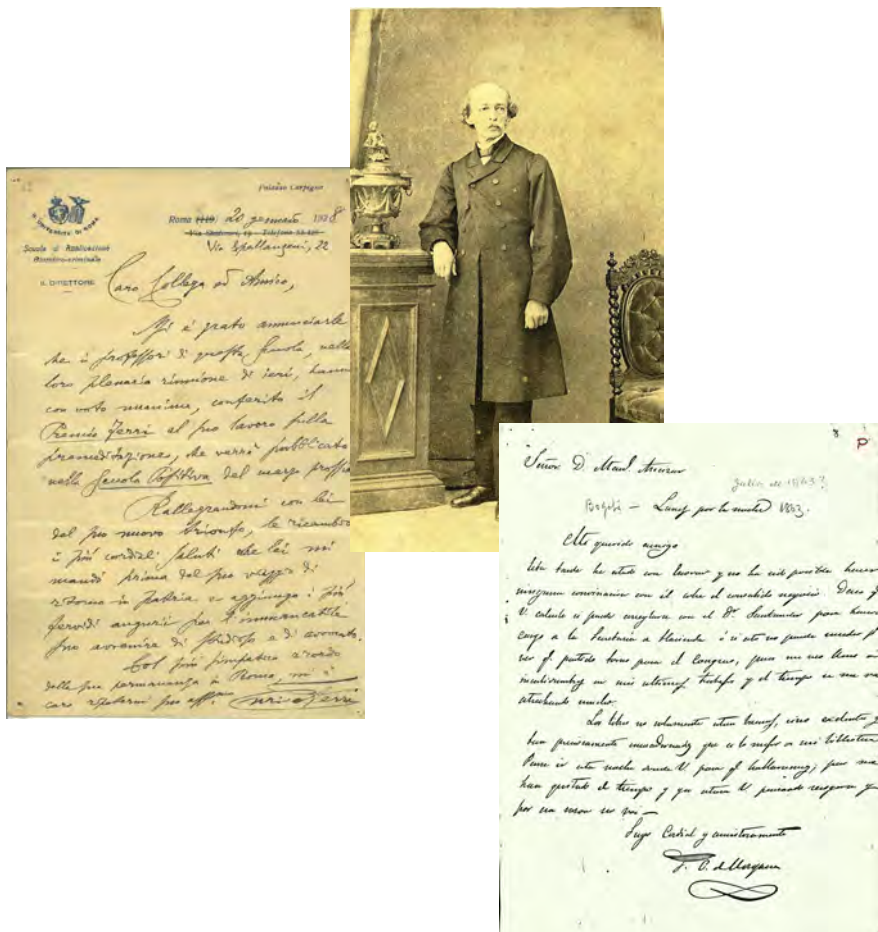 Palazzo Carpegna
R. UNIVERSITÀ DI ROMA
Roma (119) 20 gennaio 1928
Scuola di Applicazione
Giuridico-criminale
Via Spallanzani, 22
IL DIRETTORE
Caro Collega ed Amico,
Mi è grato annunciarle
che i professori di questa Scuola, nella
loro plenaria riunione di ieri, hanno
con voto unanime, conferito il
Premio Ferri al suo lavoro sulla
premeditazione, che verrà pubblicato
nella Scuola Positiva del marzo pross
Rallegrandomi con lei
del suo nuovo trionfo, le ricambio
i più cordiali saluti che lei mi
mandò prima del suo viaggio di
ritorno in Patria e aggiungo i più
fervidi auguri per l'immancabile
suo avvenire di studioso e di avvocato.
Col più simpatico ricordo
della sua permanenza in Roma, mi è
caro ripetermi suo aff.
Enrico Ferri
8
P
Señor D Manl. Ancizar
Julio de 1843?
Bogotá — Lunes por la noche 1843.
Mi querido amigo
Esta tarde he estado con y no ha sido posible hacer
ninguna combinacion con él sobre el consabido negocio. Dice q
V. calcule si puede arreglarse con el Dr. Santander para hacerse
cargo de la Secretaria de Hacienda ó si esto no puede suceder p
ver q partido toma para el Congreso, pues
en mis ultimos trabajos y el tiempo se me va
estrechando mucho.
Los libros no solamente estan buenos, sino exelentes y
tan preciosamente encuadernados que es lo mejor de mi biblioteca
Pense ir esta noche donde V. para q hablaramos; pero me
han quitado el tiempo y ya estara V.
por esa razon no voi —
Suyo Cordial y amistosamente
T. C. de Mosquera